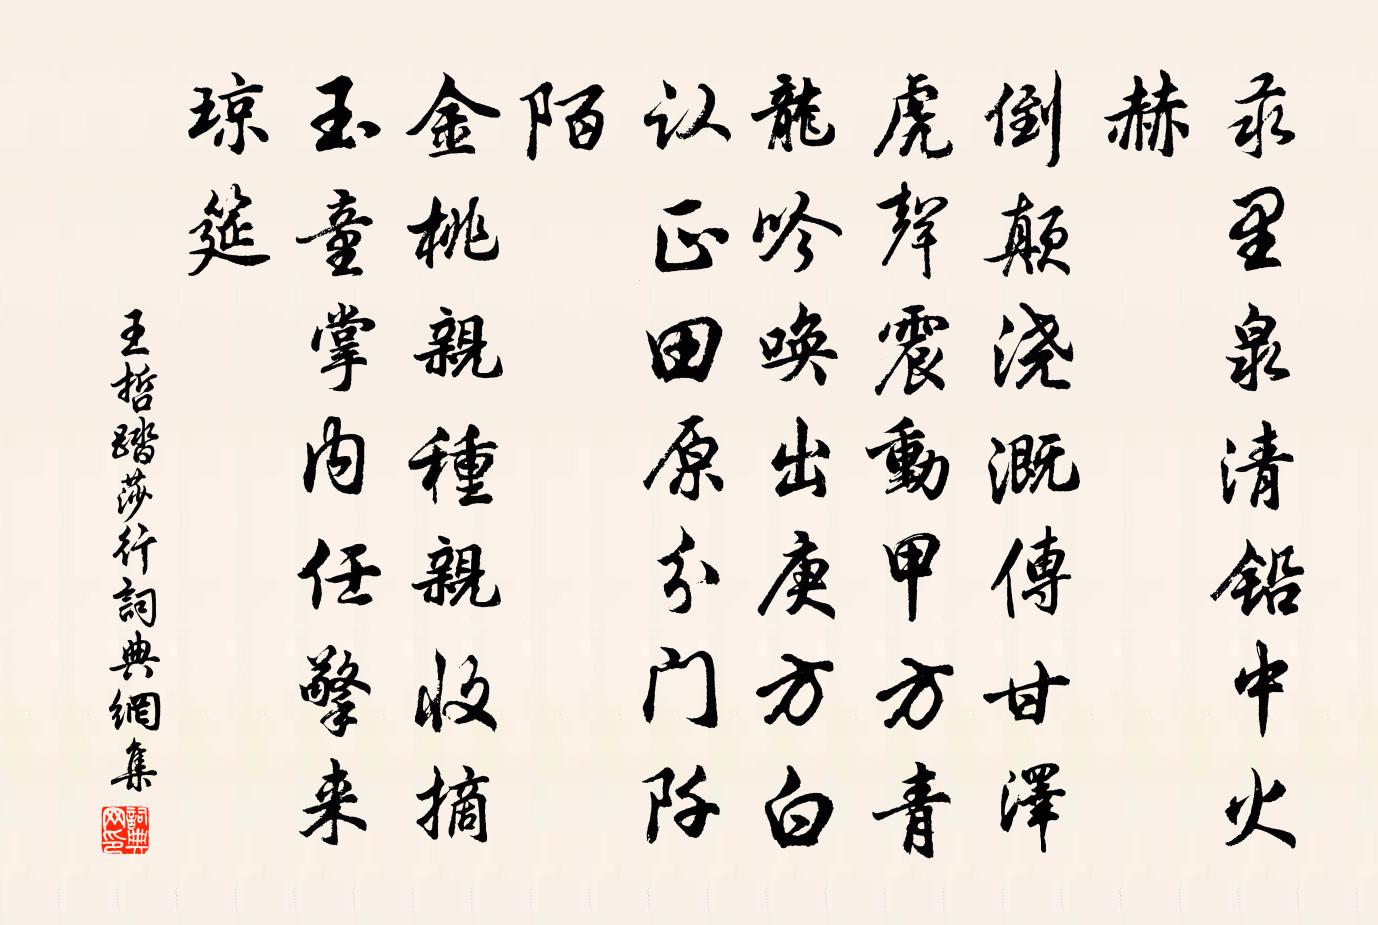 汞里泉清鉛中火
赫
倒顛浇溉傳甘澤
虎聲震動甲方青
龍吟喚出庚方白
认正田原分门阡
陌
金桃親種親收摘
玉童掌内任擎来
琼筵
王哲踏莎行詞典網集
詞典网印